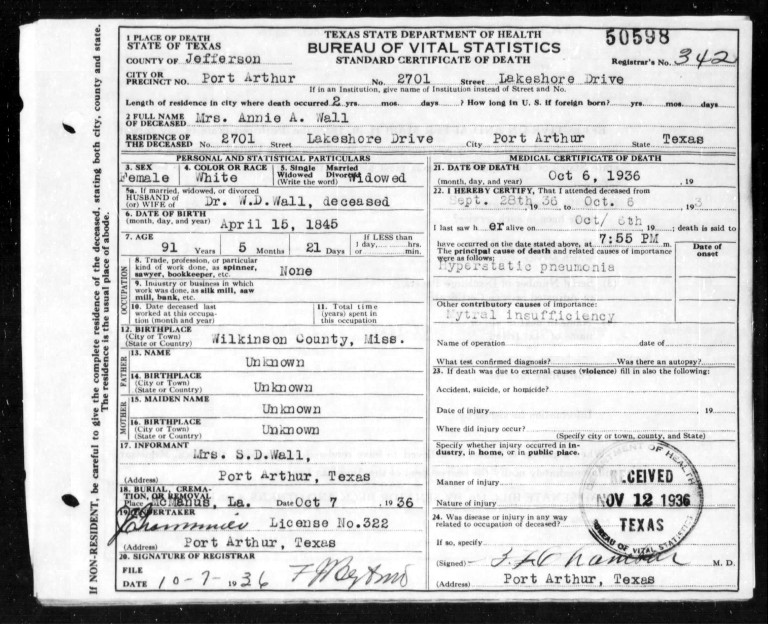 If NON-RESIDENT, be careful to give the complete residence of the deceased, stating both city, county and state.
The residence is the usual place of abode.
1 PLACE OF DEATH
STATE OF TEXAS
COUNTY OF Jefferson
TEXAS STATE DEPARTMENT OF HEALTH
BUREAU OF VITAL STATISTICS
STANDARD CERTIFICATE OF DEATH
50598
Registrar's No. 342
CITY OR PRECINCT NO. Port Arthur No. 2701 Street Lakeshore Drive
If in an Institution, give name of Institution instead of Street and No.
Length of residence in city where death occurred 2 yrs. mos. days ? How long in U. S. if foreign born? yrs. mos. days
2 FULL NAME OF DECEASED Mrs. Annie A. Wall
RESIDENCE OF THE DECEASED No. 2701 Street Lakeshore Drive City Port Arthur State Texas
PERSONAL AND STATISTICAL PARTICULARS
3. SEX Female
4. COLOR OR RACE White
5. Single Married Widowed Divorced (Write the word) Widowed
5a. If married, widowed, or divorced
HUSBAND of (or) WIFE of Dr. W.D.Wall, deceased
6. DATE OF BIRTH
(month, day, and year) April 15, 1845
7. AGE 91 Years 5 Months 21 Days If LESS than 1 day, hrs. or min.
OCCUPATION
8. Trade, profession, or particular kind of work done, as spinner, sawyer, bookkeeper, etc. None
9. Industry or business in which work was done, as silk mill, saw mill, bank, etc.
10. Date deceased last worked at this occupation (month and year)
11. Total time (years) spent in this occupation
12. BIRTHPLACE
(City or Town)
(State or Country) Wilkinson County, Miss.
FATHER
13. NAME Unknown
14. BIRTHPLACE
(City or Town)
(State or Country) Unknown
MOTHER
15. MAIDEN NAME Unknown
16. BIRTHPLACE
(City or Town)
(State or Country) Unknown
17. INFORMANT Mrs. S.D.Wall,
(Address) Port Arthur, Texas
18. BURIAL, CREMATION, OR REMOVAL
Place McManus, La. Date Oct 7 , 1936
19. UNDERTAKER License No.322
(Address) Port Arthur, Texas
20. SIGNATURE OF REGISTRAR
FILE DATE 10-7-1936
MEDICAL CERTIFICATE OF DEATH
21. DATE OF DEATH
(month, day, and year) Oct 6, 1936 , 19
22. I HEREBY CERTIFY, That I attended deceased from
Sept. 28th 36, 19 to Oct. 6 193
I last saw h er alive on Oct/ 6th 19 ; death is said to
have occurred on the date stated above, at 7:55 PM m.
The principal cause of death and related causes of importance were as follows:
Date of onset
Hyperstatic pneumonia
Other contributory causes of importance:
Mytral insufficiency
Name of operation date of
What test confirmed diagnosis? Was there an autopsy?
23. If death was due to external causes (violence) fill in also the following:
Accident, suicide, or homicide?
Date of injury , 19
Where did injury occur?
(Specify city or town, county, and State)
Specify whether injury occurred in industry, in home, or in public place.
Manner of injury
Nature of injury
24. Was disease or injury in any way related to occupation of deceased?
If so, specify
(Signed) M. D.
(Address) Port Arthur, Texas
DEPARTMENT OF HEALTH
RECEIVED
NOV 12 1936
TEXAS
BUREAU OF VITAL STATISTICS